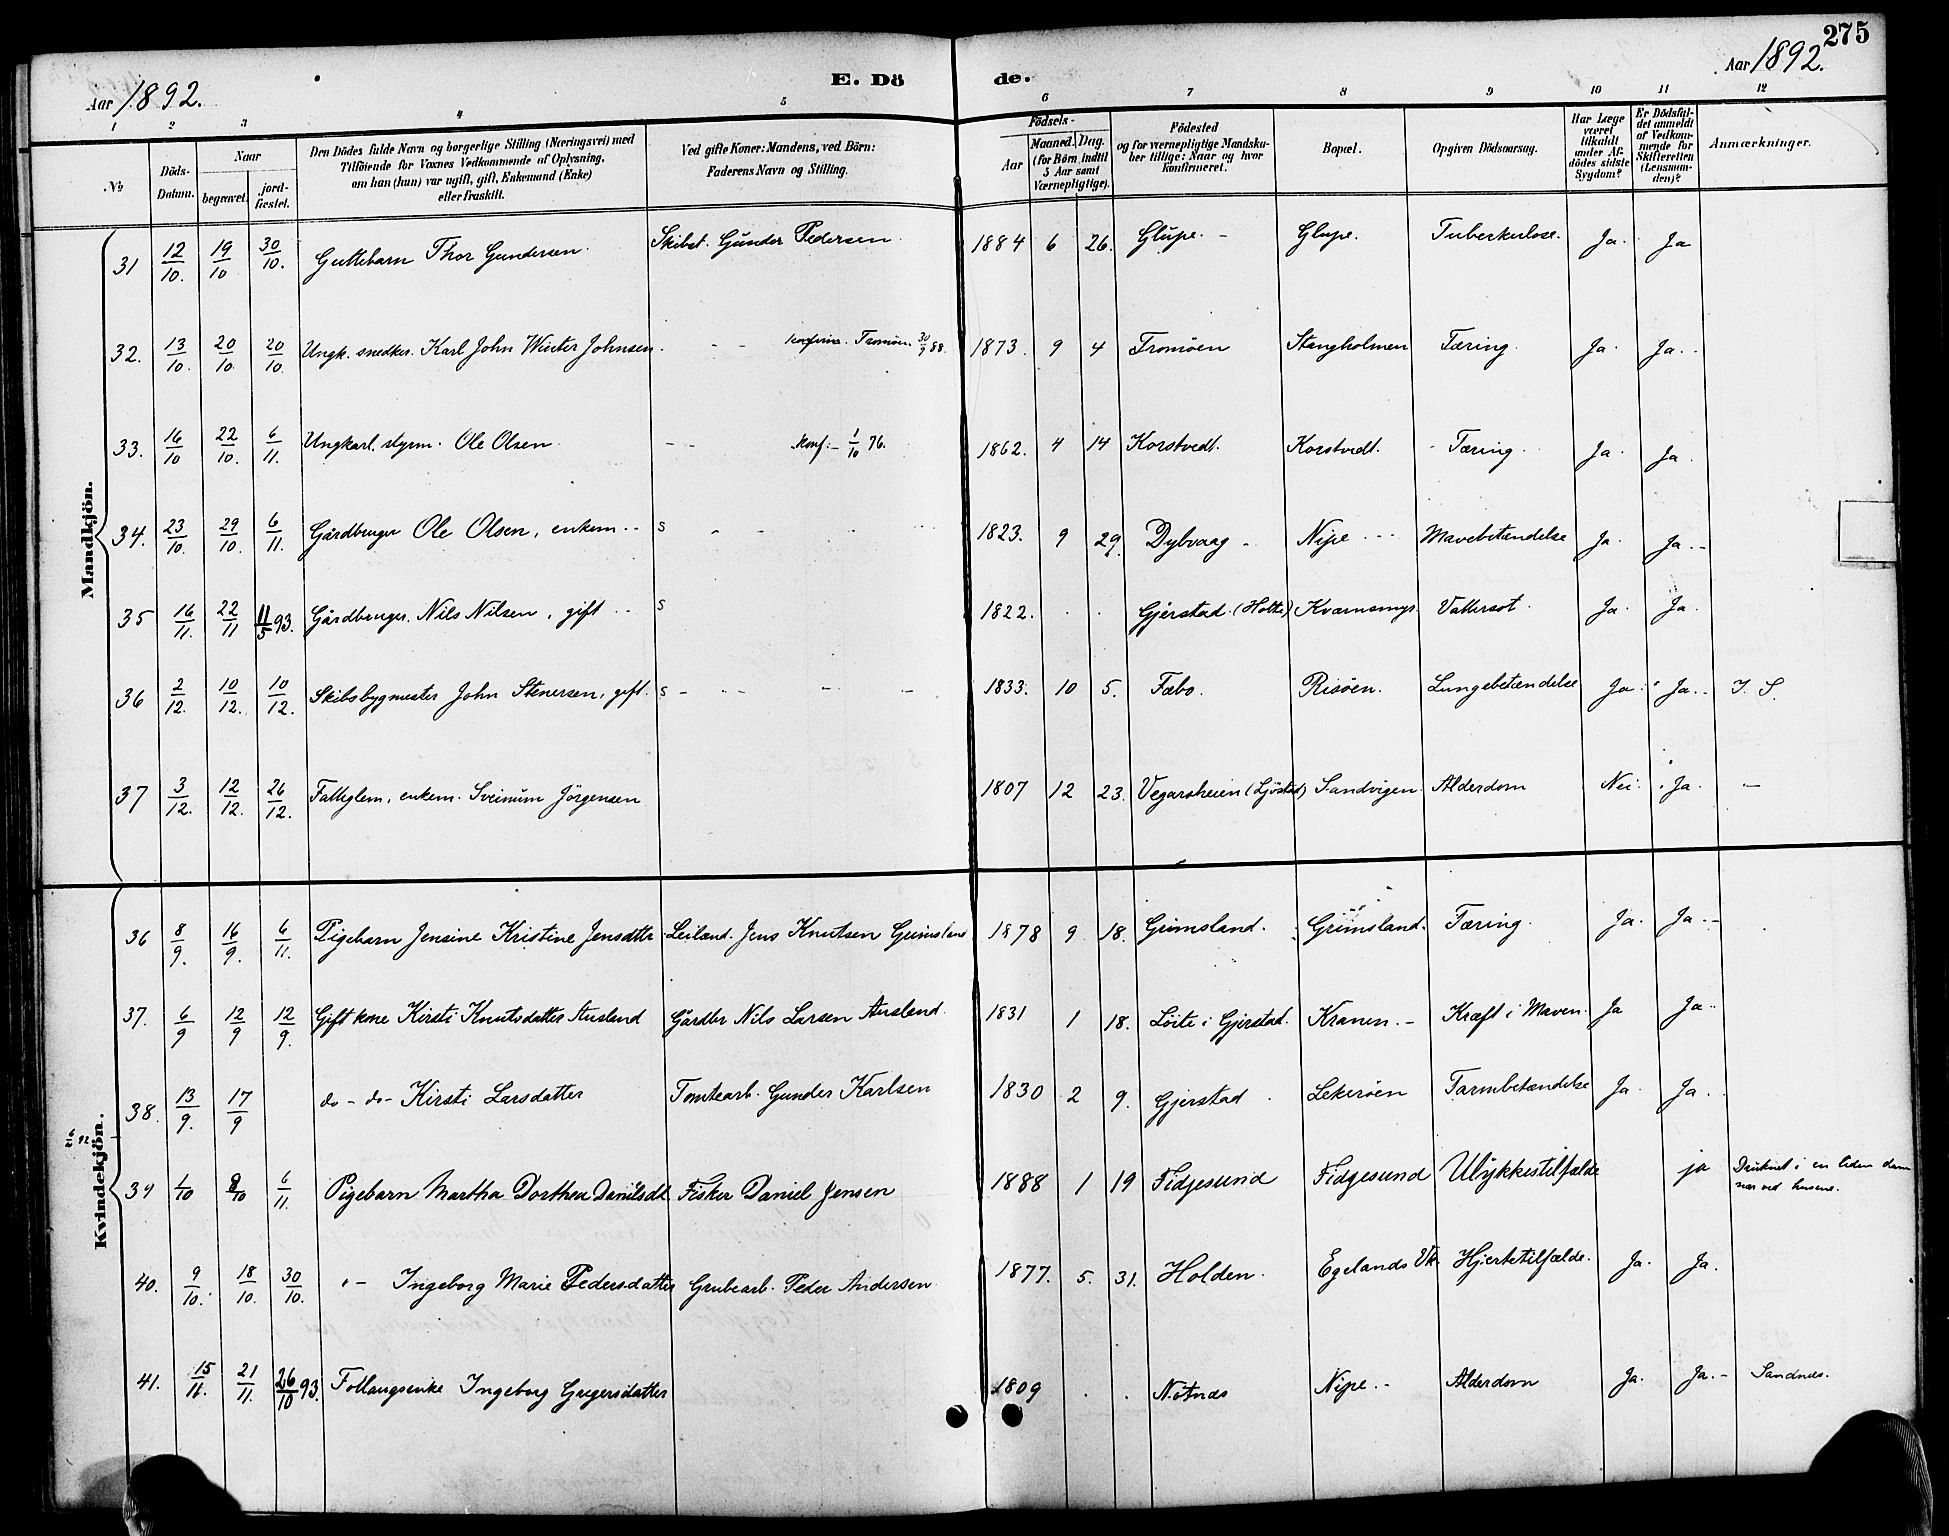 275
Aar 1892.
E. Dö de.
Aar 1892.
1 2 3 4 5 6 7 8 9 10 11 12
№
Döds-Datum.
Naar
begravet.
jordfæstet.
Den Dödes fulde Navn og borgerlige Stilling (Næringsvei) med
Tilföiende for Voxnes Vedkommende af Oplysning,
om han (hun) var ugift, gift, Enkemand (Enke)
eller fraskilt.
Ved gifte Koner: Mandens, ved Börn:
Faderens Navn og Stilling.
Födsels-
Aar
Maaned. Dag.
(for Börn indtil
5 Aar samt
Værnepligtige).
Födested
og for værnepligtige Mandskaber tillige: Naar og hvor
konfirmeret.
Bopæl.
Opgiven Dödsaarsag.
Har Læge
været
tilkaldt
under Afdödes sidste
Sygdom?
Er Dödsfaldet anmeldt
af Vedkommende for
Skifteretten
(Lensmanden)?
Anmærkninger.
Mandkjön.
31 12/10. 19/10 30/10. Guttebarn Thor Gundersen. Skibst. Gunder Pedersen. 1884 6 26. Glupe. - Glupe. Tuberkulose. Ja. Ja
32. 13/10. 20/10. 20/10. Ungk. snedker. Karl John Winter Johnsen. - - konfirm. Tromöen 30/9 88. 1873. 9 4 Tromöen Stangholmen Tæring. Ja. Ja..
33. 16/10 22/10. 6/11. Ungkarl. styrm. Ole Olsen. - - konf: - 1/10 76. 1862. 4 14 Korstvedt. Korstvedt. - Tæring. Ja. Ja.
34. 23/10. 29/10. 6/11. Gårdbruger Ole Olsen, enkem.. s - - 1823. 9 29. Dybvaag - Nipe - - - Mavebetændelse Ja. Ja. -
35 16/11. 22/11 11/5 93. Gårdbruger. Nils Nilsen, gift .. s 1822. . . Gjerstad. (Holte) Kværnsmyr. Vattersot. Ja. Ja.
36 2/12. 10/12. 10/12. Skibsbygmester John Stenersen, gift. s - - - - - 1833. 10 5. Fæbo. Risöen. Lungebetændelse Ja. Ja.. I. S.
37 3/12. 12/12. 26/12. Fattiglem, enkem. Svinum Jörgensen 1807 12 23. Vegarsheien (Ljöstad) Sandvigen. Alderdom Nei. Ja. -
Kvindekjön.
36 8/9. 16/9. 6/11. Pigebarn Jensine Kristine Jensdtr. Leilænd. Jens Knutsen Grimsland 1878 9 18. Grimsland. Grimsland. Tæring. Ja. Ja. -
37. 6/9 12/9 12/9. Gift kone Kirsti Knutsdatter Ausland Gårdbr Nils Larsen Ausland. 1831 1 18. Löite i Gjerstad. Kranen. - Kræft i Maven. Ja Ja..
38. 13/9. 17/9 do - do - Kirsti Larsdatter Tomtearb. Gunder Karlsen 1830 2 9. Gjerstad Lekeröen Tarmbetændelse Ja. Ja.
39 1/10 8/10 6/11. Pigebarn Martha Dorthea Danilsdt. Fisker Daniel Jensen 1888 1 19 Fidjesund Fidjesund Ulykkestilfælde ja Druknet i en liden dam
nær ved husene.
40. 9/10. 18/10. 30/10. " - Ingeborg Marie Pedersdatter Grubearb. Peder Andersen 1877. 5. 31. Holden. Egelands Vk. Hjertetilfælde. Ja. Ja.
41. 15/11. 21/11. 26/10 93. Follaugsenke Ingeborg Gregersdatter 1809 . . Nötnæs Nipe. - Alderdom Ja. Ja. - Sandnæs.